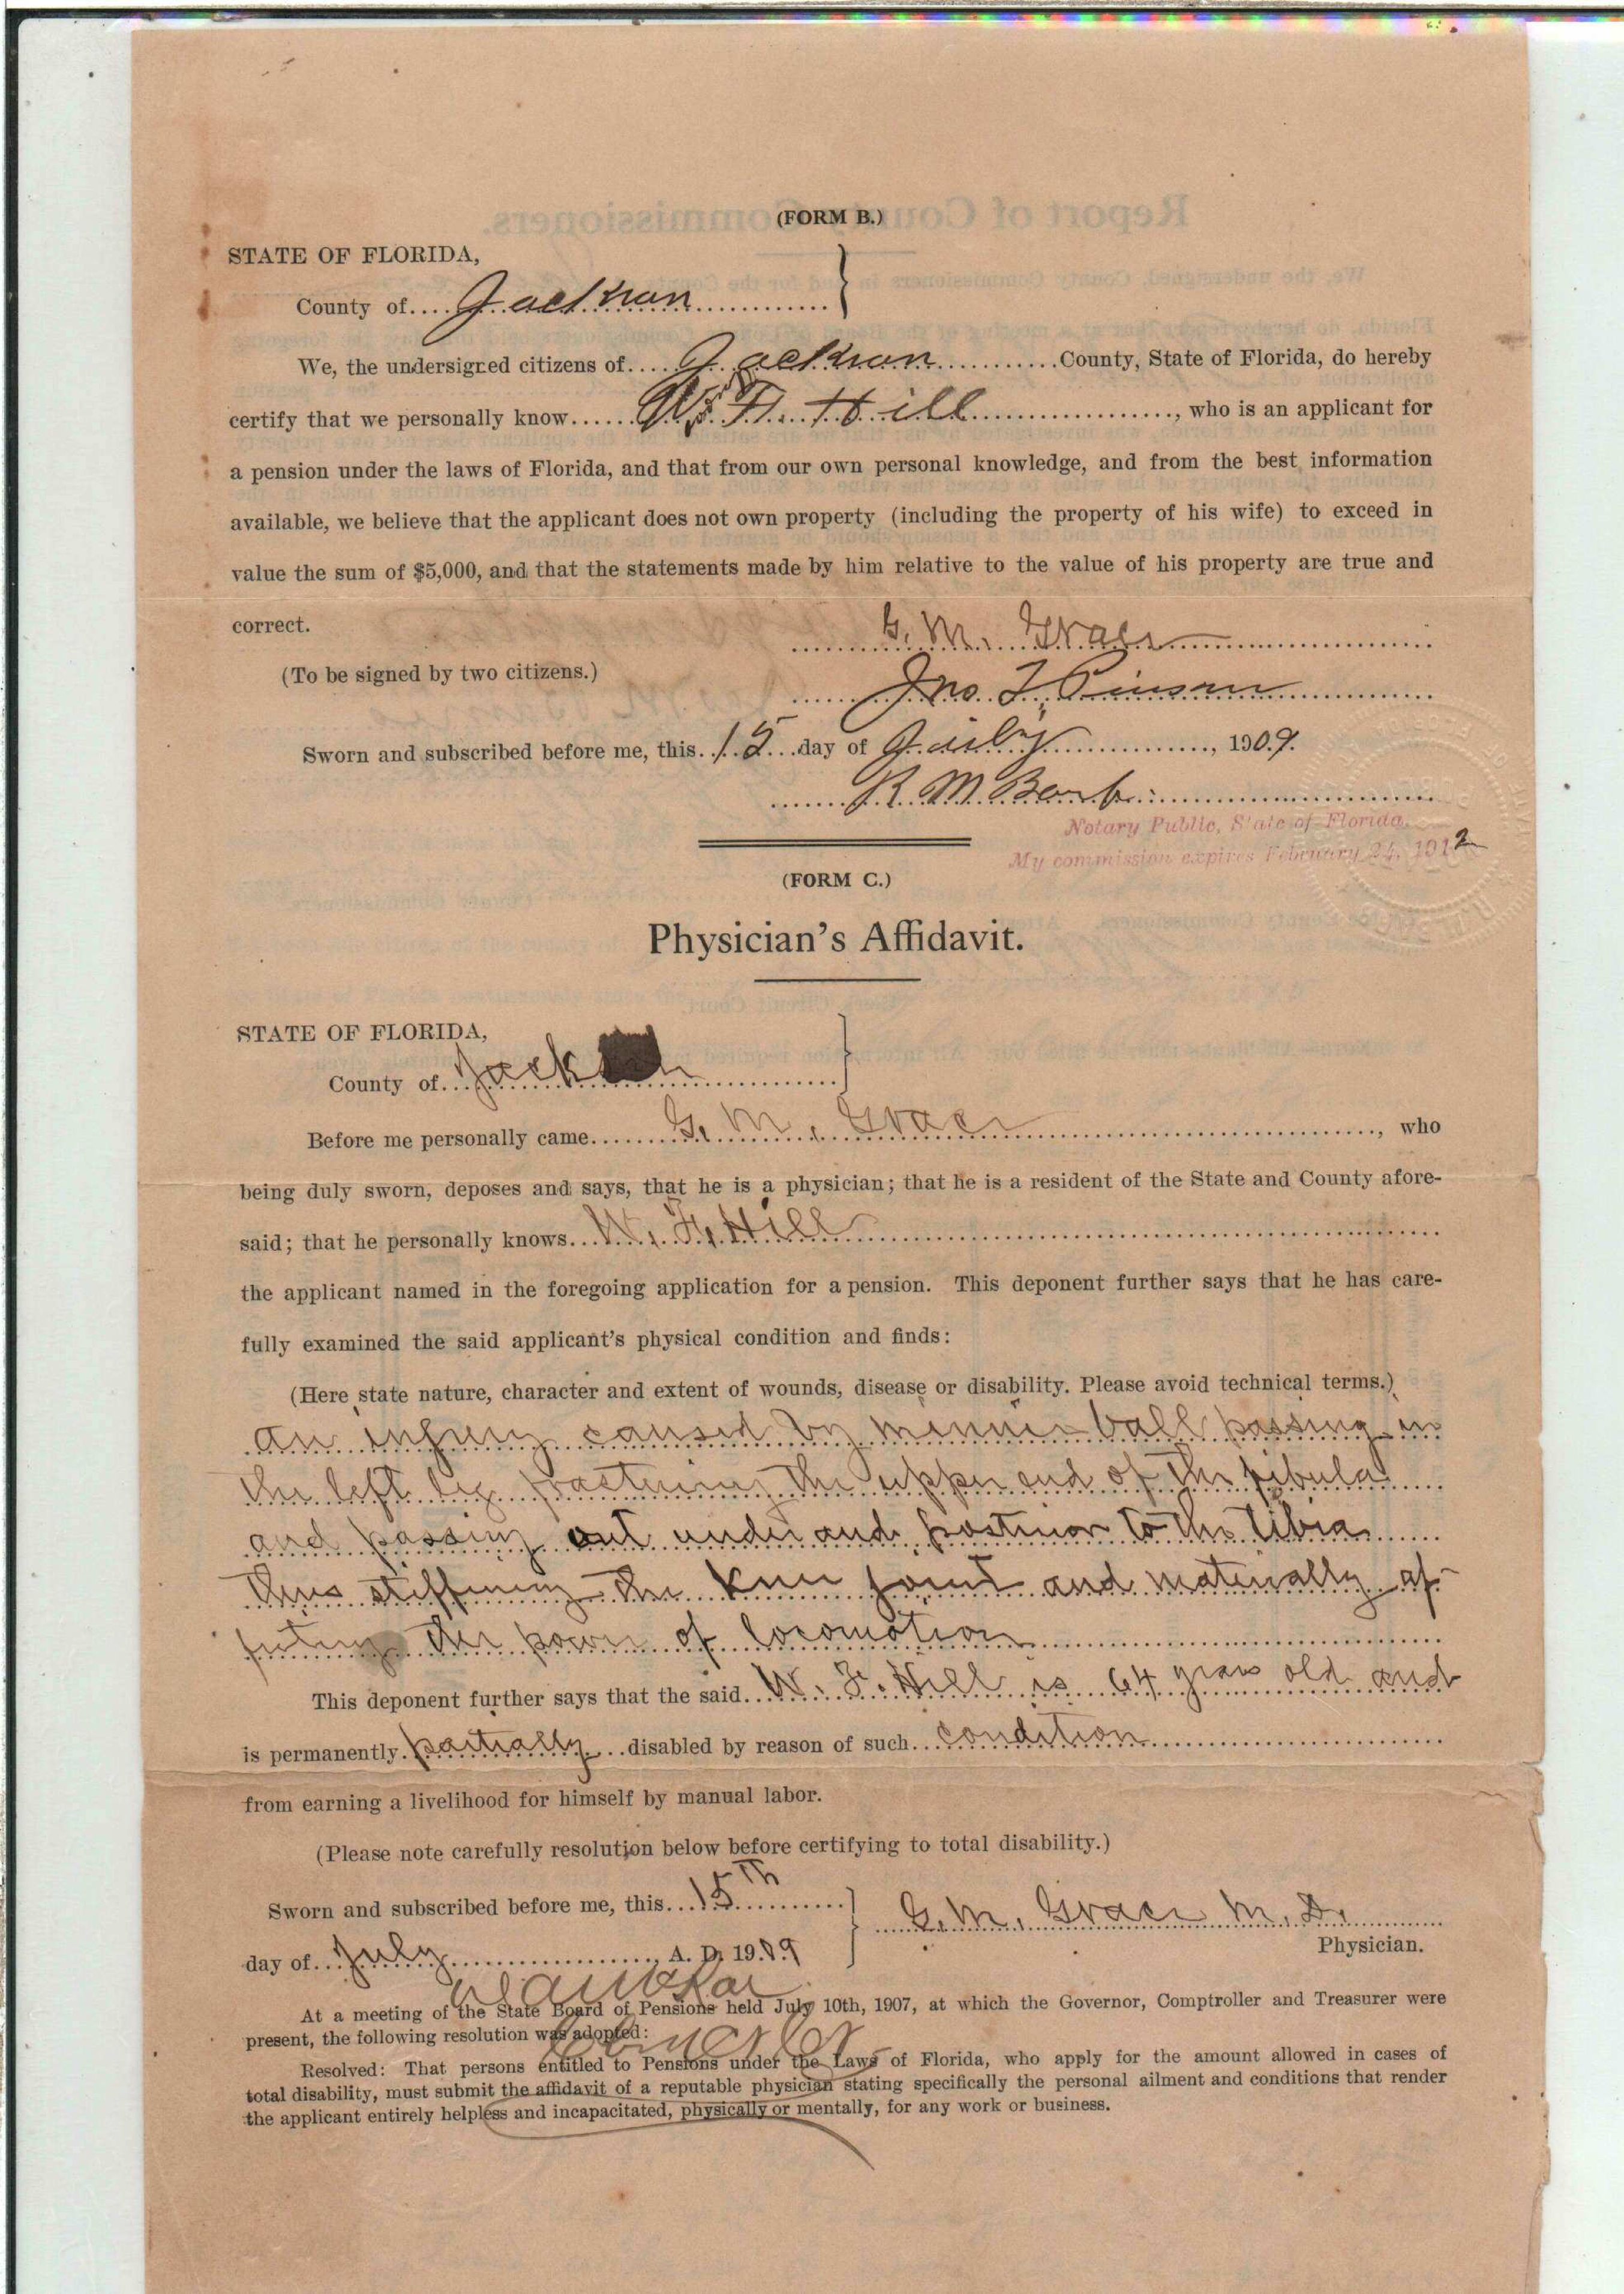 (FORM B.)
STATE OF FLORIDA,
County of.... Jackson ............
We, the undersigned citizens of.... Jackson ............County, State of Florida, do hereby
certify that we personally know...... W. F. Hill ..................., who is an applicant for
a pension under the laws of Florida, and that from our own personal knowledge, and from the best information
available, we believe that the applicant does not own property (including the property of his wife) to exceed in
value the sum of $5,000, and that the statements made by him relative to the value of his property are true and
correct.
G. M. Grace
(To be signed by two citizens.)
Jno. T. Pinson
Sworn and subscribed before me, this. 15 ...day of July ................, 1909.
R. M.
Notary Public, State of Florida.
My commission expires February 24, 1912
(FORM C.)
Physician's Affidavit.
STATE OF FLORIDA,
County of... Jackson ............
Before me personally came....... G. M. Grace ............................, who
being duly sworn, deposes and says, that he is a physician; that he is a resident of the State and County afore-
said; that he personally knows... W. F. Hill ............................
the applicant named in the foregoing application for a pension. This deponent further says that he has care-
fully examined the said applicant's physical condition and finds:
(Here state nature, character and extent of wounds, disease or disability. Please avoid technical terms.)
an injury caused by minnie ball passing in
the left leg fracturing the upper end of the fibula
and passing out under and posterior to the tibia
thus stiffening the knee joint and materially af-
fecting the power of locomotion
This deponent further says that the said... W. F. Hill is 64 years old and
is permanently. partially ...disabled by reason of such... condition ......................
from earning a livelihood for himself by manual labor.
(Please note carefully resolution below before certifying to total disability.)
Sworn and subscribed before me, this... 15th ...........
G. M. Grace M. D.
day of... July ...................., A. D. 1909
Physician.
At a meeting of the State Board of Pensions held July 10th, 1907, at which the Governor, Comptroller and Treasurer were
present, the following resolution was adopted:
Resolved: That persons entitled to Pensions under the Laws of Florida, who apply for the amount allowed in cases of
total disability, must submit the affidavit of a reputable physician stating specifically the personal ailment and conditions that render
the applicant entirely helpless and incapacitated, physically or mentally, for any work or business.